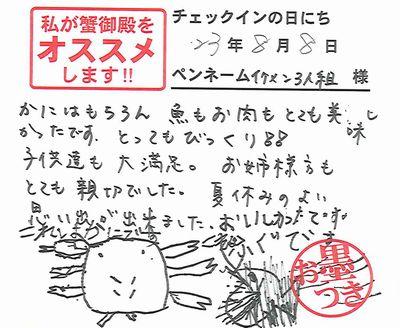 私が蟹御殿を
オススメ
します!!
チェックインの日にち
23年8月8日
ペンネームイケメン3人組 様
かにはもちろん 魚もお肉もとても美味し
かったです。とってもびっくり!!
子供達も 大満足。 お姉様方も
とても 親切でした。 夏休みのよい
思い出が出来ました。おいしかったです。
これはかにです
ふぐです
お墨つき